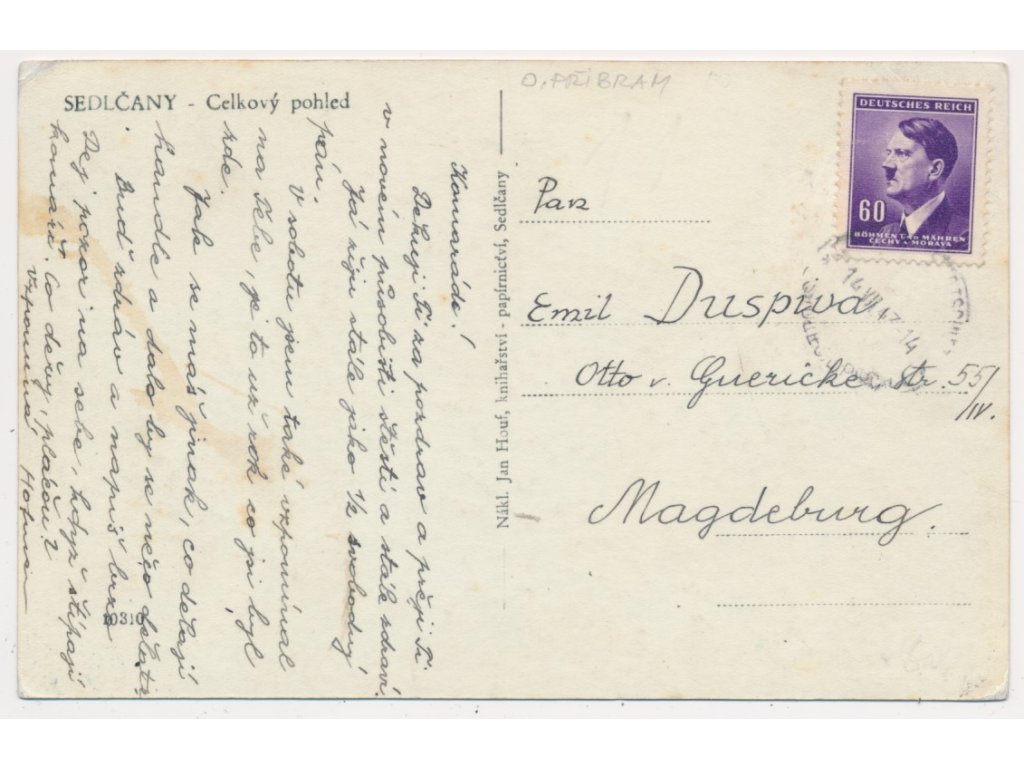 SEDLČANY - Celkový pohled
O. PŘIBRAM
Kamaráde!
Děkuji Ti za pozdrav a přeji Ti
v novém působišti štěstí a stále zdraví.
Já žiji stále jako ½ svobodný
pán.
V sobotu jsem také vzpomínal
na Tebe, je to už rok co jsi byl
zde.
Jak se máš jinak, co dělají
handle a dalo by se něco dělat?
Buď zdráv a napiš brzo
Dej pozor na sebe, když štípají
komáři. Co děvy, pláčou?
Vzpomíná
10310
Nákl. Jan Houf, knihařství - papírnictví, Sedlčany
DEUTSCHES REICH
60
BÖHMEN U. MÄHREN
ČECHY A MORAVA
14
Pan
Emil Duspiva
Otto v. Guericke str. 55/
IV.
Magdeburg.